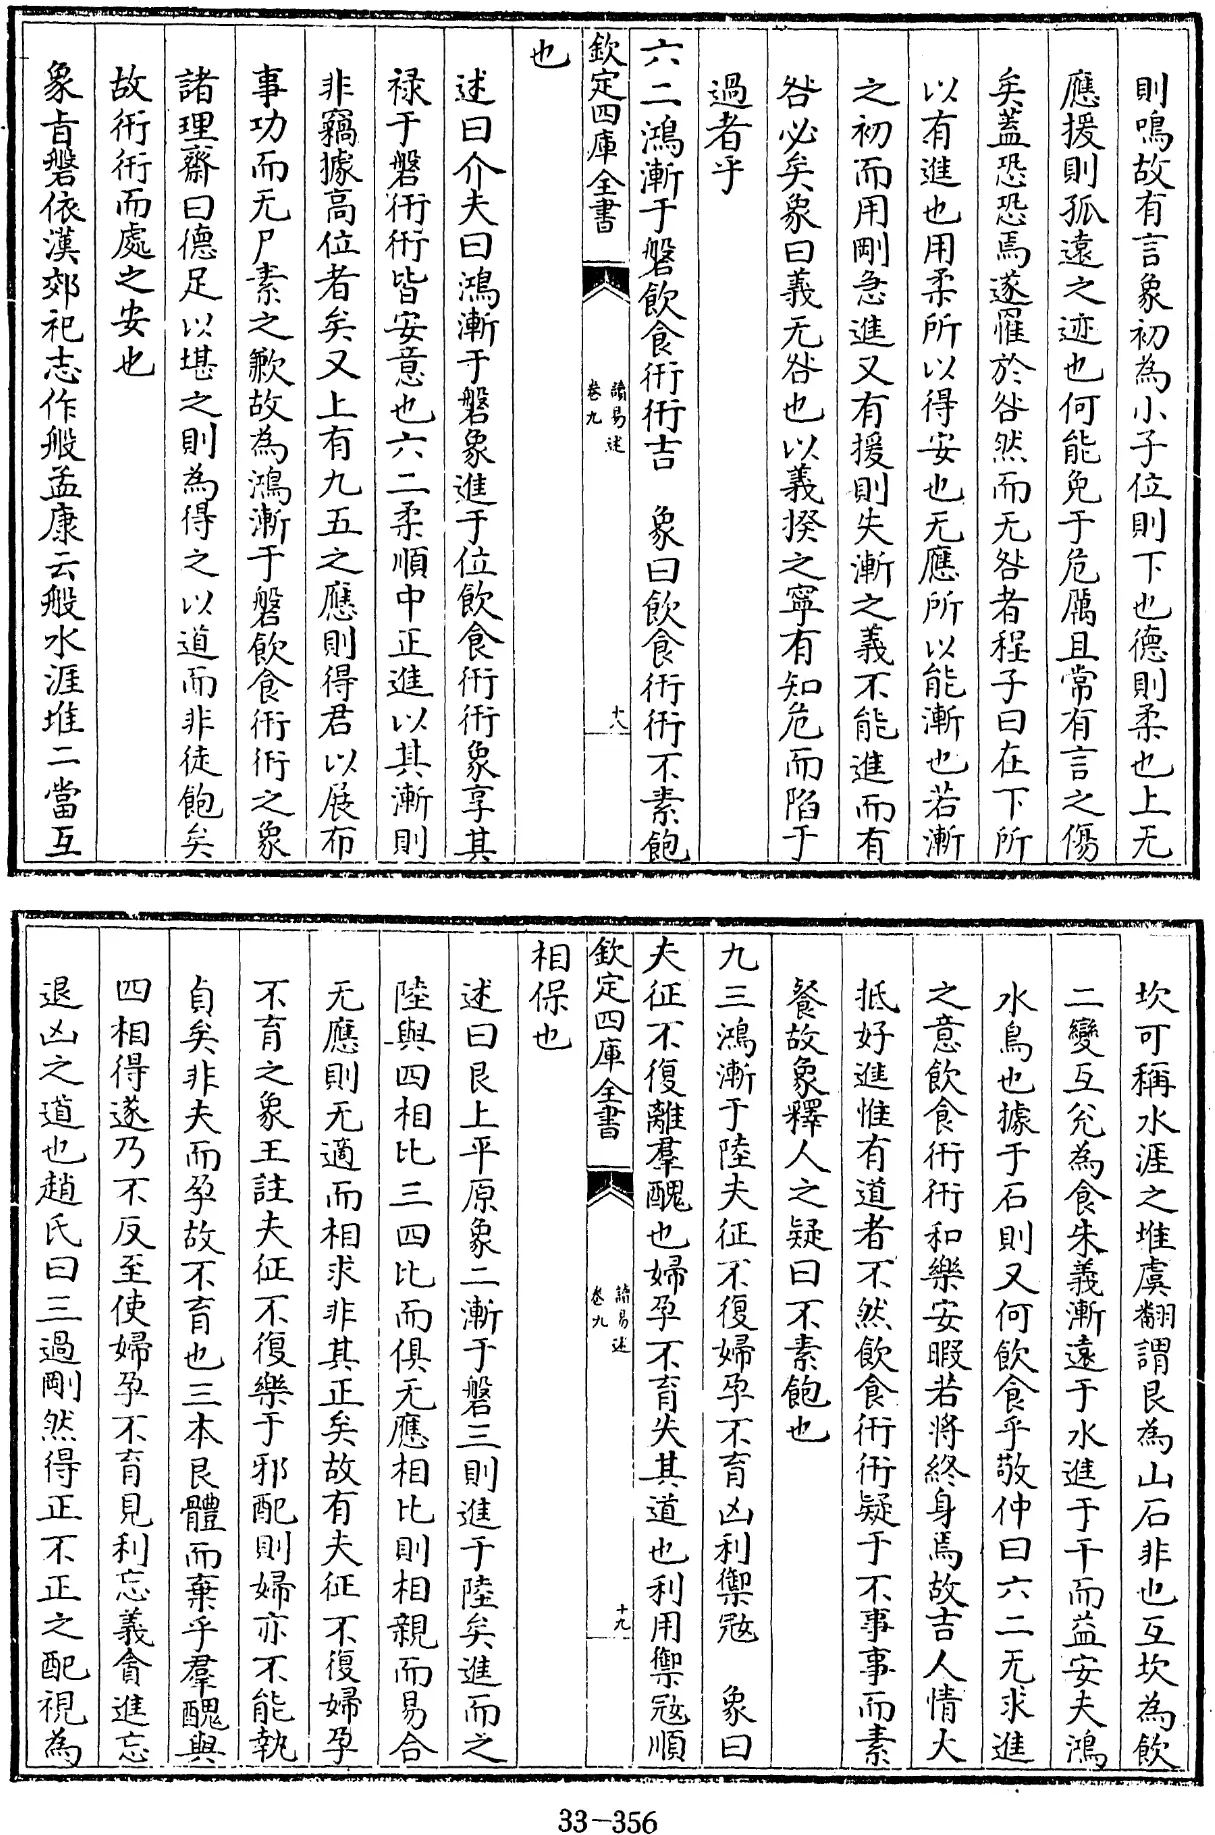 則鳴故有言象初為小子位則下也德則柔也上无
應援則孤遠之迹也何能免于危厲且常有言之傷
矣蓋恐恐焉遂罹於咎然而无咎者程子曰在下所
以有進也用柔所以得安也无應所以能漸也若漸
之初而用剛急進又有援則失漸之義不能進而有
咎必矣象曰義无咎也以義揆之寧有知危而陷于
過者乎
六二鴻漸于磐飲食衎衎吉　象曰飲食衎衎不素飽
欽定四庫全書
讀易述
卷九
十八
也
述曰介夫曰鴻漸于磐象進于位飲食衎衎象享其
祿于磐衎衎皆安意也六二柔順中正進以其漸則
非竊據高位者矣又上有九五之應則得君以展布
事功而无尸素之歉故為鴻漸于磐飲食衎衎之象
諸理齋曰德足以堪之則為得之以道而非徒飽矣
故衎衎而處之安也
象旨磐依漢郊祀志作般孟康云般水涯堆二當互
坎可稱水涯之堆虞翻謂艮為山石非也互坎為飲
二變互兌為食朱義漸遠于水進于干而益安夫鴻
水鳥也據于石則又何飲食乎敬仲曰六二无求進
之意飲食衎衎和樂安暇若將終身焉故吉人情大
抵好進惟有道者不然飲食衎衎疑于不事事而素
餐故象釋人之疑曰不素飽也
九三鴻漸于陸夫征不復婦孕不育凶利禦寇　象曰
夫征不復離羣醜也婦孕不育失其道也利用禦寇順
欽定四庫全書
讀易述
卷九
十九
相保也
述曰艮上平原象二漸于磐三則進于陸矣進而之
陸與四相比三四比而俱无應相比則相親而易合
无應則无適而相求非其正矣故有夫征不復婦孕
不育之象王註夫征不復樂于邪配則婦亦不能執
貞矣非夫而孕故不育也三本艮體而棄乎羣醜與
四相得遂乃不反至使婦孕不育見利忘義貪進忘
退凶之道也趙氏曰三過剛然得正不正之配視為
33-356